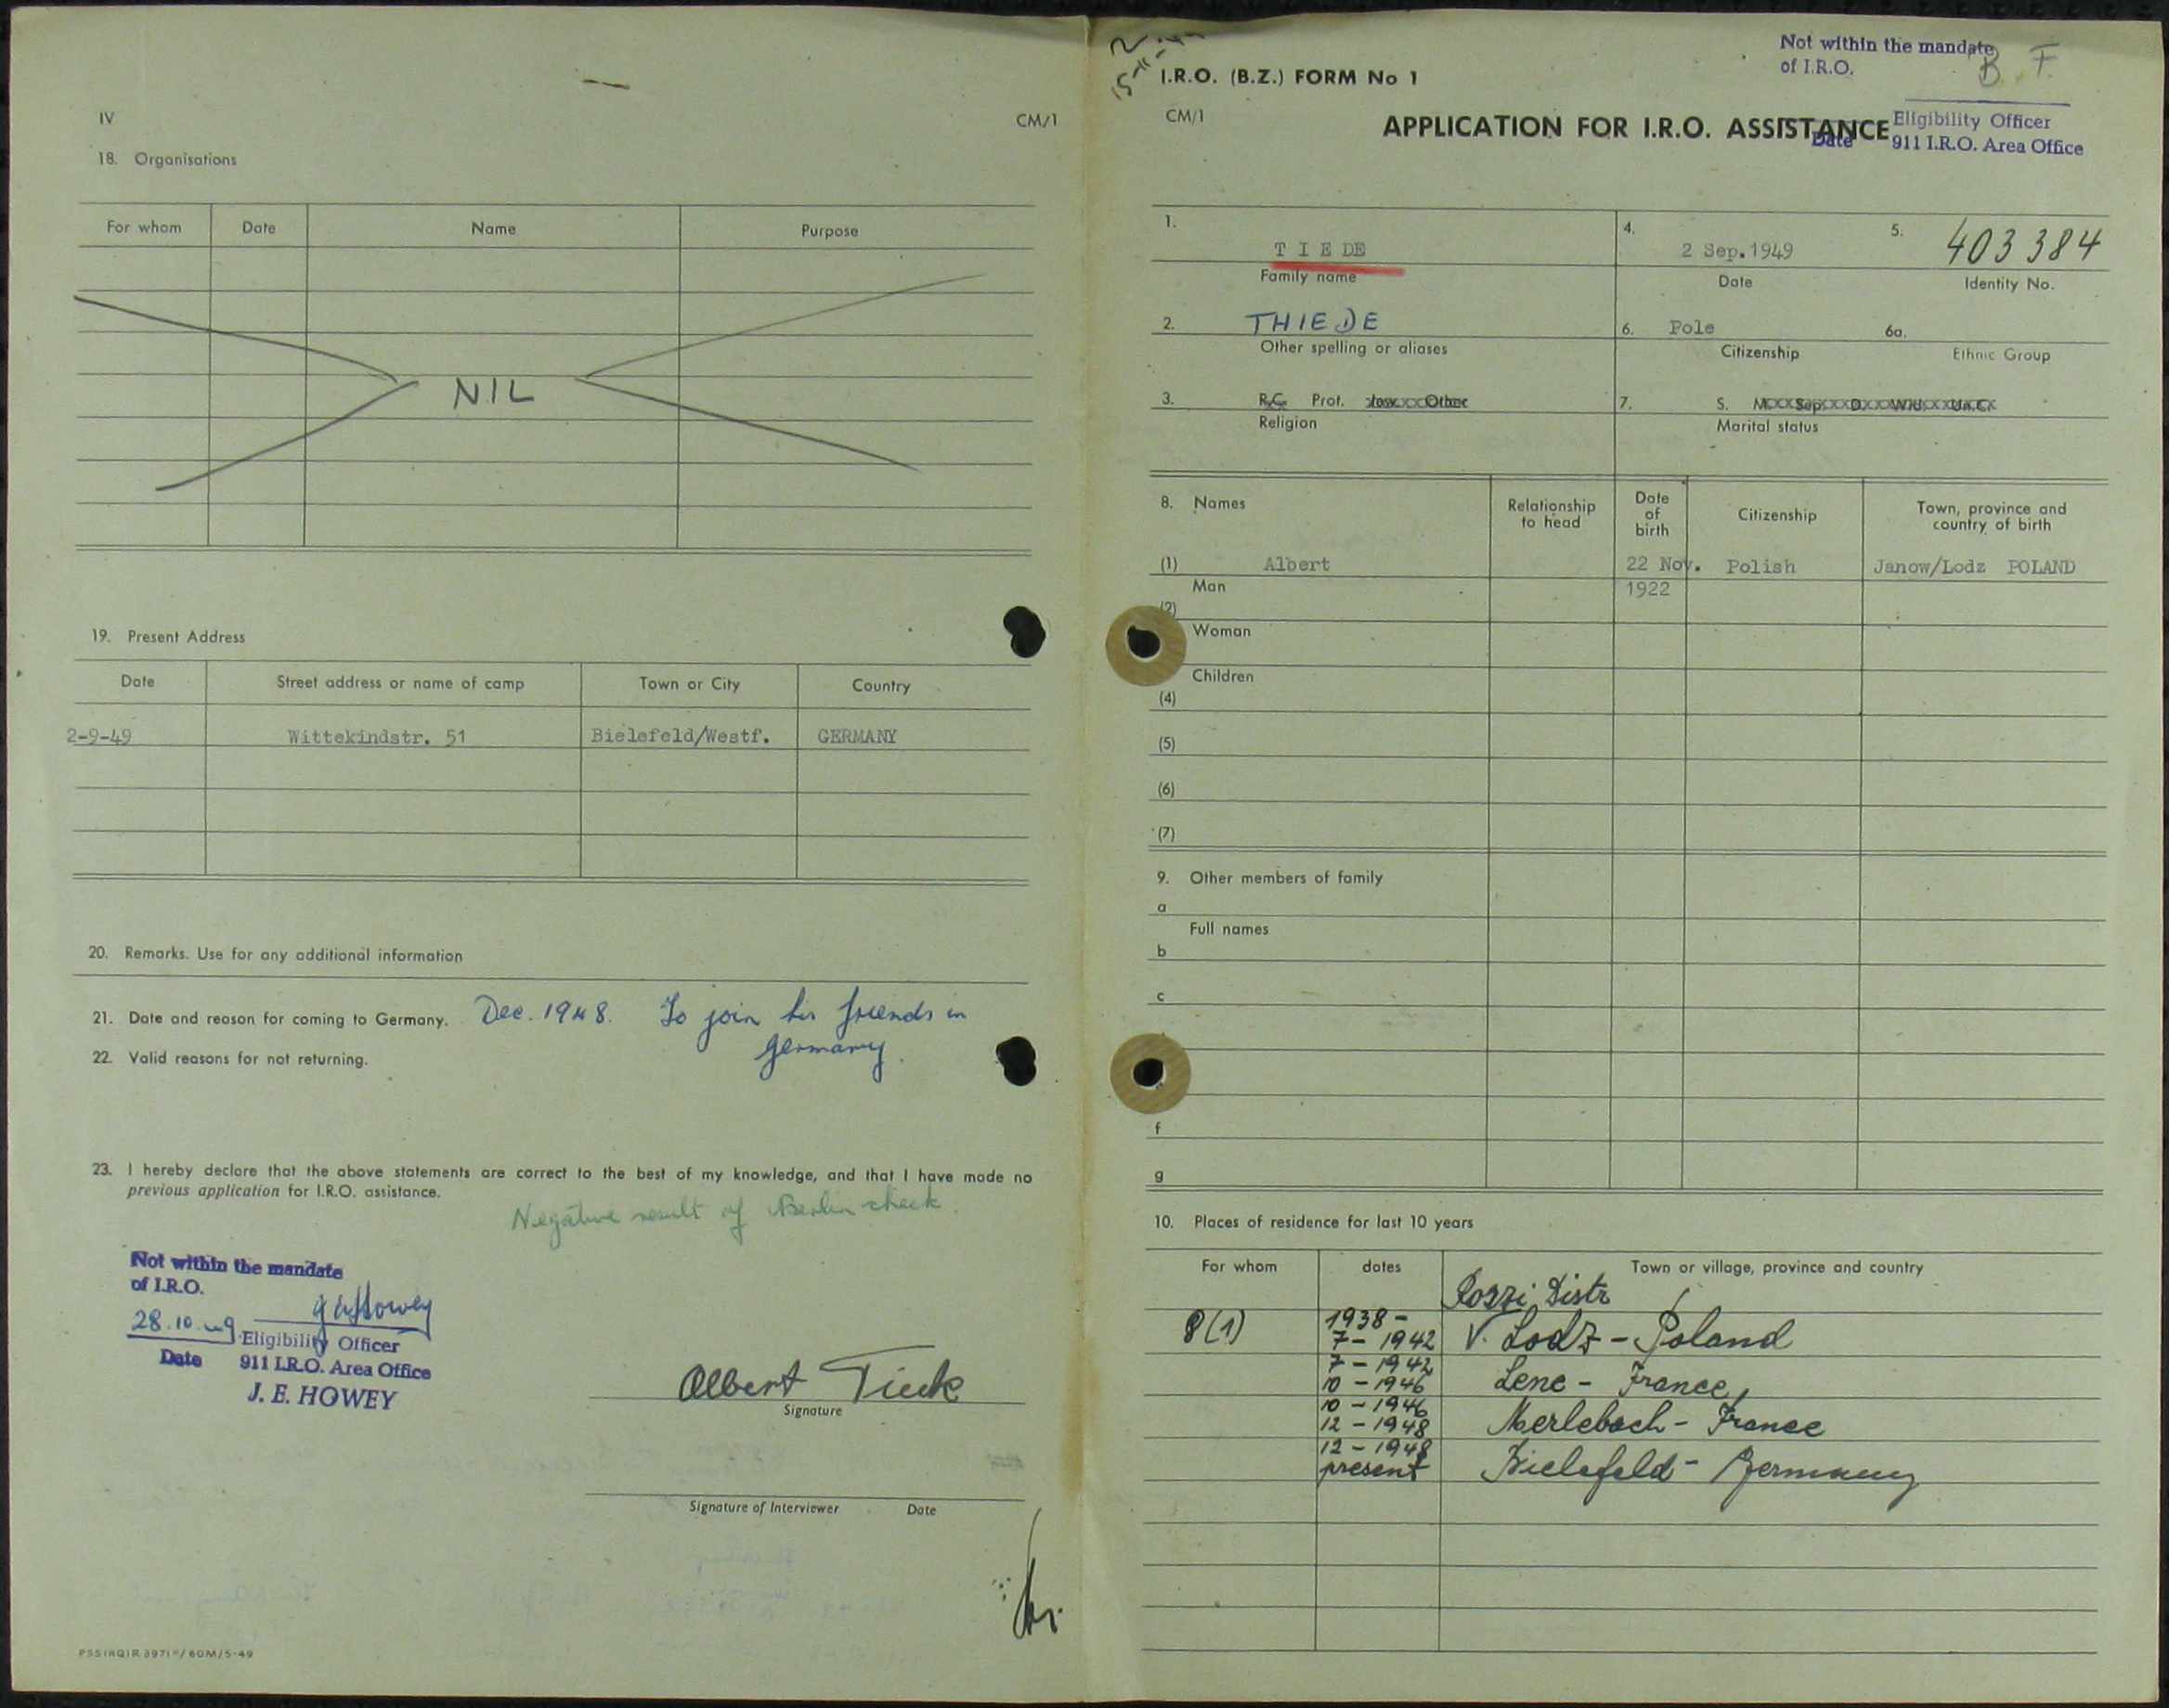 IV
CM/1
18. Organisations
For whom Date Name Purpose
NIL
19. Present Address
Date Street address or name of camp Town or City Country
2-9-49 Wittekindstr. 51 Bielefeld/Westf. GERMANY
20. Remarks. Use for any additional information
21. Date and reason for coming to Germany. Dec. 1948. To join his friends in
Germany.
22. Valid reasons for not returning.
23. I hereby declare that the above statements are correct to the best of my knowledge, and that I have made no
previous application for I.R.O. assistance.
Negative result of Berlin check.
Not within the mandate
of I.R.O.
28.10.49 J E Howey
Eligibility Officer
Date 911 I.R.O. Area Office
J. E. HOWEY
Albert Tiede
Signature
Signature of Interviewer Date
PSS IRQIR 3971 /60M/5-49
I.R.O. (B.Z.) FORM No 1
Not within the mandate
of I.R.O.
B. F.
CM/1
APPLICATION FOR I.R.O. ASSISTANCE
Eligibility Officer
Date 911 I.R.O. Area Office
1. T I E DE
Family name
4. 2 Sep.1949
Date
5. 403384
Identity No.
2. THIEDE
Other spelling or aliases
6. Pole
Citizenship
6a.
Ethnic Group
3. R.C. Prot. Jew. Other
Religion
7. S. M. Sep. D. Wid. Un.C.
Marital status
8. Names Relationship to head Date of birth Citizenship Town, province and country of birth
(1) Albert 22 Nov. Polish Janow/Lodz POLAND
Man 1922
(2)
Woman
Children
(4)
(5)
(6)
(7)
9. Other members of family
a
Full names
b
c
f
g
10. Places of residence for last 10 years
For whom dates Town or village, province and country
8(1) 1938 -
7 - 1942 Lodz - Poland
7 - 1942
10 - 1946 Lenc - France
10 - 1946
12 - 1948 Merlebach - France
12 - 1948
present Bielefeld - Germany